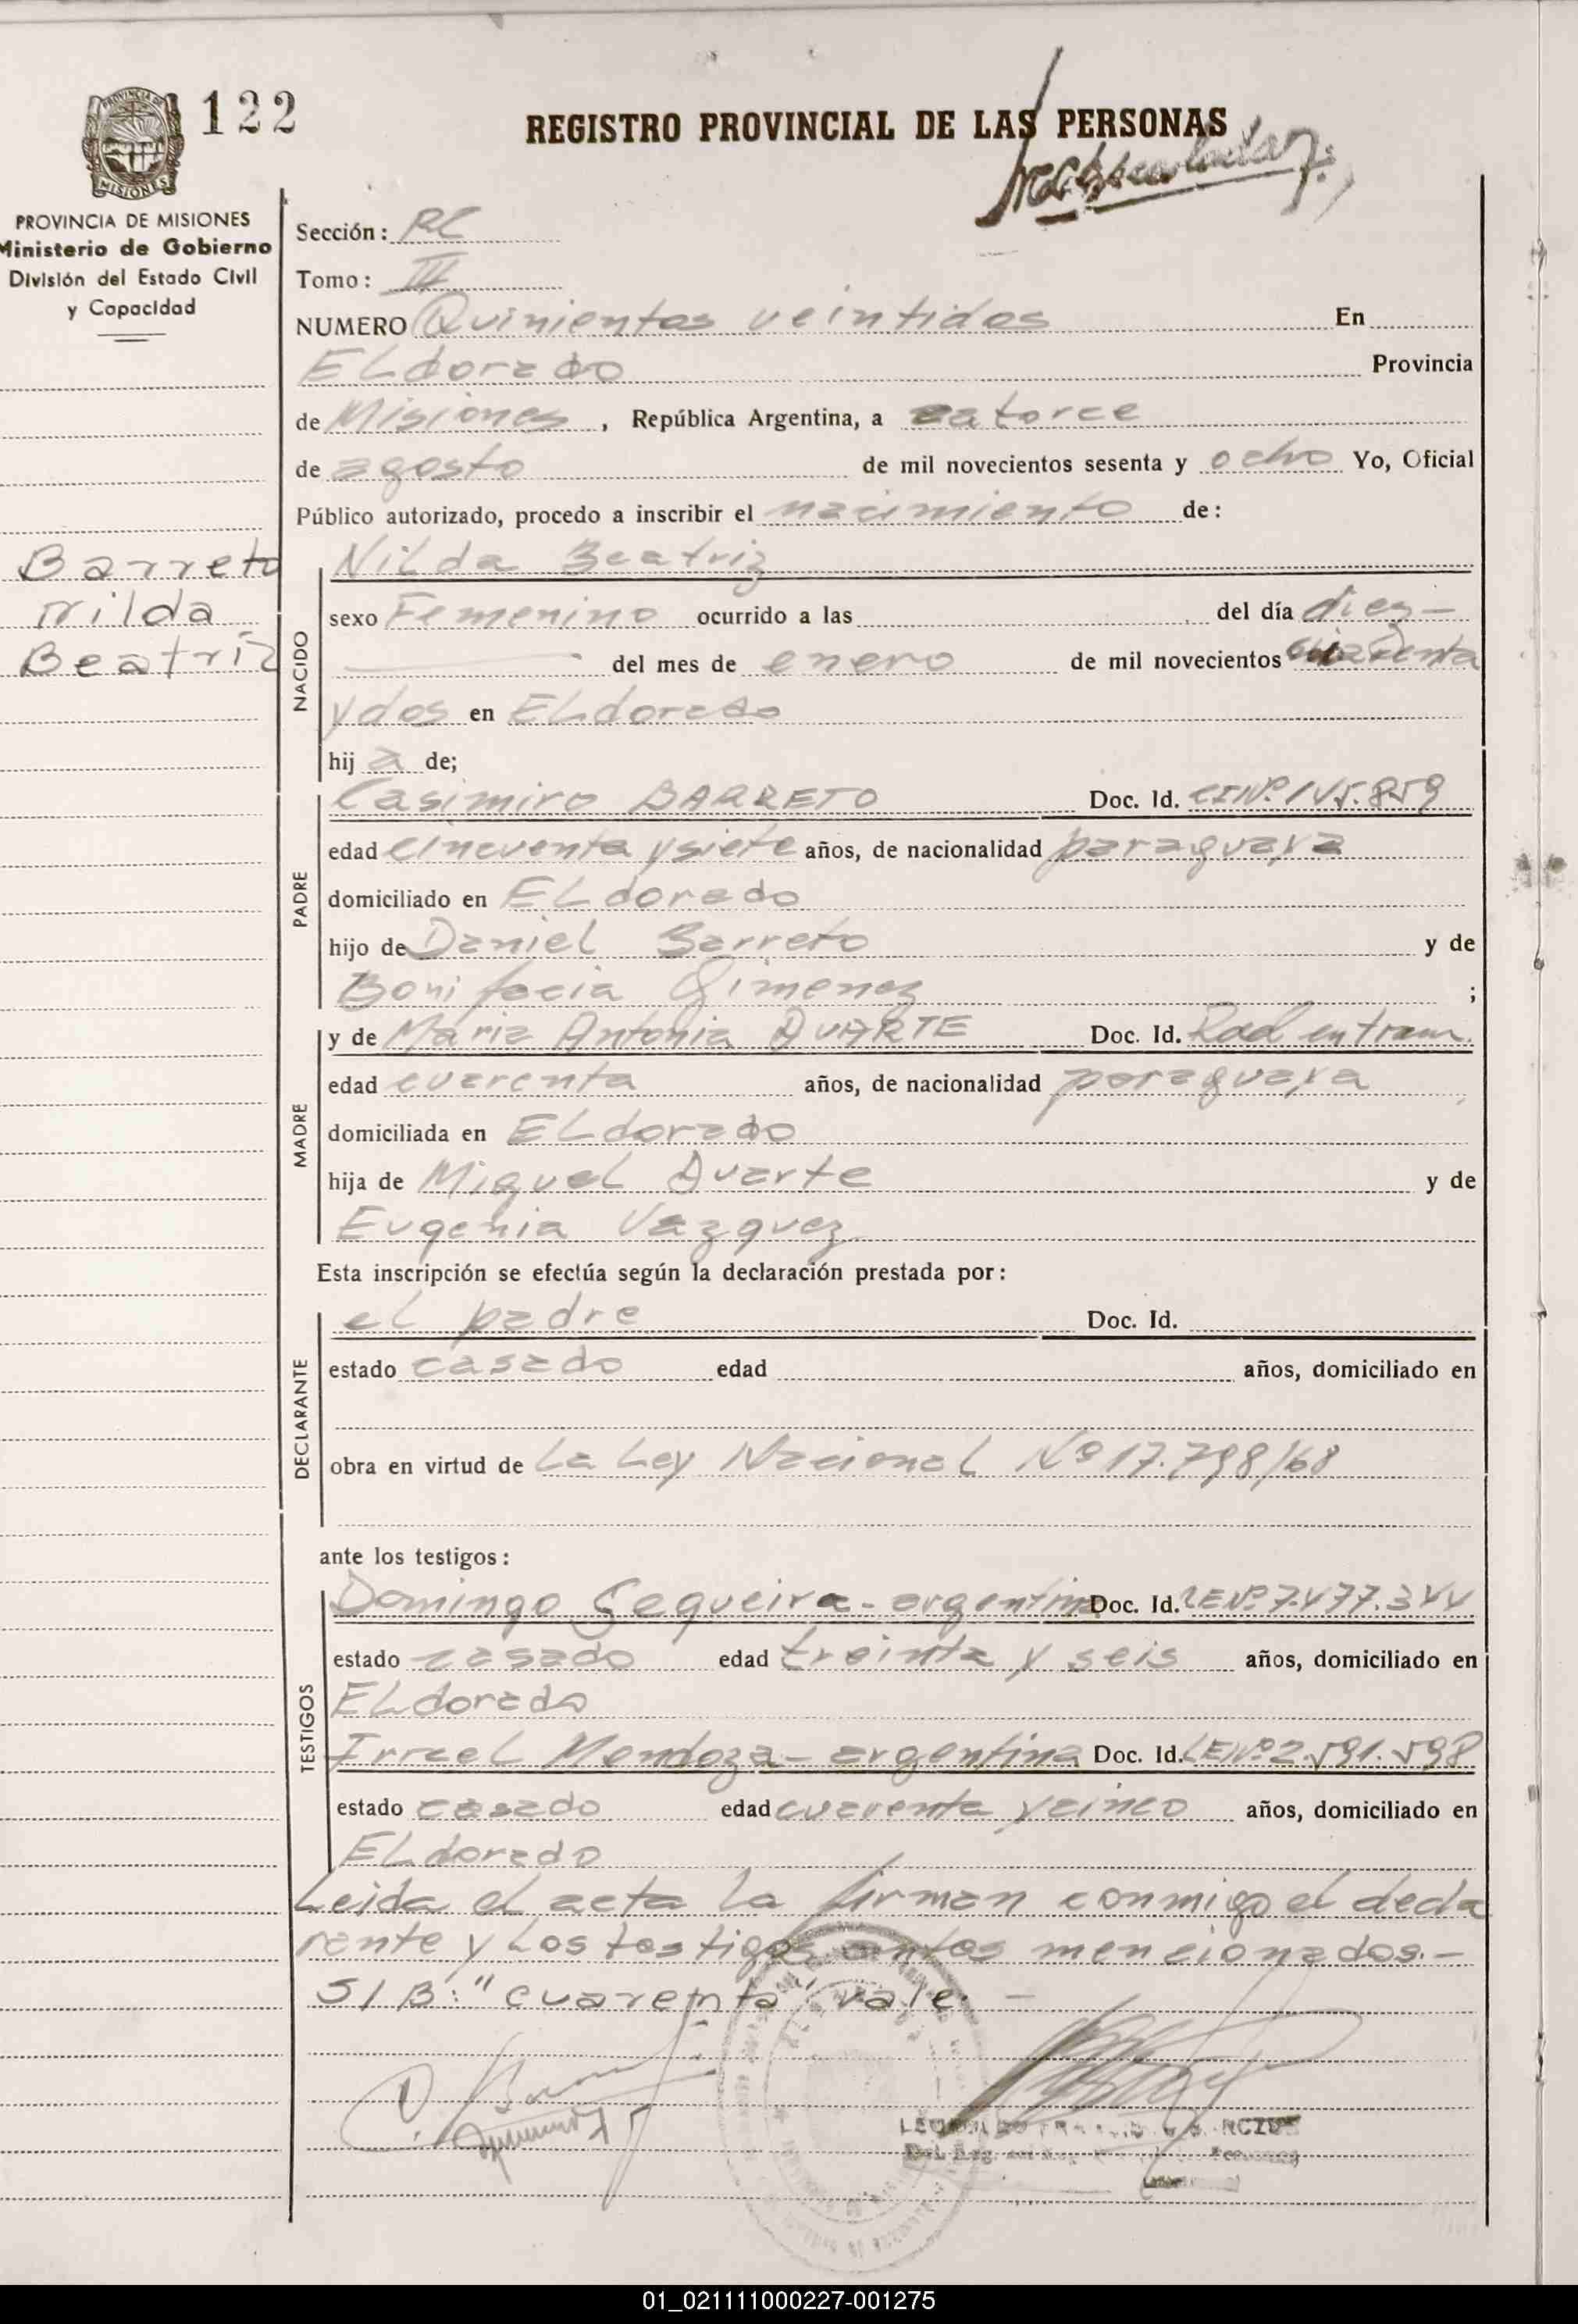 122
REGISTRO PROVINCIAL DE LAS PERSONAS
PROVINCIA DE MISIONES
Ministerio de Gobierno
División del Estado Civil
y Capacidad
Sección: RC
Tomo: III
NUMERO Quinientos veintidos En
ELdorado Provincia
de Misiones, República Argentina, a catorce
de agosto de mil novecientos sesenta y ocho Yo, Oficial
Público autorizado, procedo a inscribir el nacimiento de:
Barreto
Nilda
Beatriz
NACIDO
Nilda Beatriz
sexo Femenino ocurrido a las del día dies-
del mes de enero de mil novecientos cuarenta
y dos en ELdorado
hij a de;
PADRE
Casimiro BARRETO Doc. Id. CINº 145.859
edad cincuenta y siete años, de nacionalidad paraguaya
domiciliado en ELdorado
hijo de Daniel Barreto y de
Bonifacia Gimenez ;
MADRE
y de Maria Antonia DUARTE Doc. Id. Rad en tram.
edad cuarenta años, de nacionalidad paraguaya
domiciliada en ELdorado
hija de Miguel Duarte y de
Eugenia Vazquez
Esta inscripción se efectúa según la declaración prestada por:
DECLARANTE
el padre Doc. Id.
estado casado edad años, domiciliado en
obra en virtud de La Ley Nacional Nº 17.798/68
ante los testigos:
TESTIGOS
Domingo Sequeira - argentina Doc. Id. LENº 7.477.344
estado casado edad treinta y seis años, domiciliado en
ELdorado
Irrael Mendoza - argentina Doc. Id. LENº 2.591.598
estado casado edad cuarenta y cinco años, domiciliado en
ELdorado
Leida el acta la firman conmigo el decla
rante y Los testigos antes mencionados.-
S/B: "cuarenta" vale. -
01_021111000227-001275